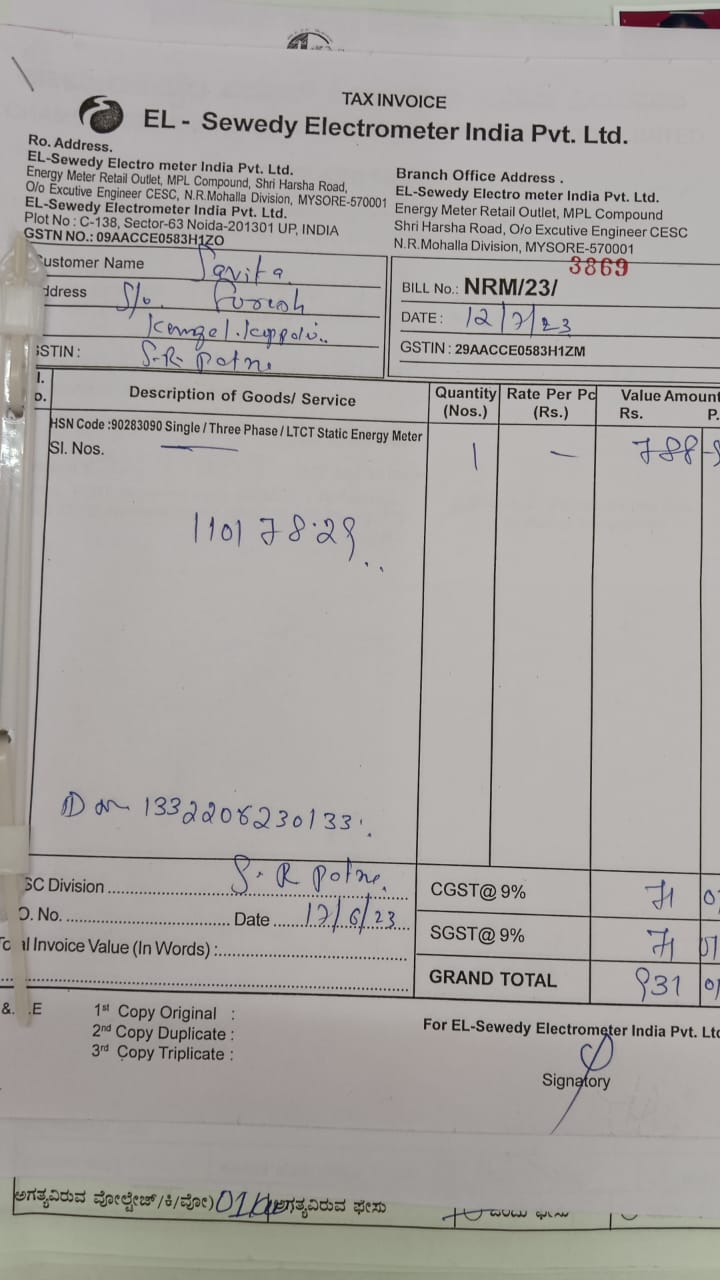 TAX INVOICE
EL - Sewedy Electrometer India Pvt. Ltd.
Ro. Address.
EL-Sewedy Electro meter India Pvt. Ltd.
Energy Meter Retail Outlet, MPL Compound, Shri Harsha Road,
O/o Excutive Engineer CESC, N.R.Mohalla Division, MYSORE-570001
EL-Sewedy Electrometer India Pvt. Ltd.
Plot No : C-138, Sector-63 Noida-201301 UP, INDIA
GSTN NO.: 09AACCE0583H1ZO
Branch Office Address .
EL-Sewedy Electro meter India Pvt. Ltd.
Energy Meter Retail Outlet, MPL Compound
Shri Harsha Road, O/o Excutive Engineer CESC
N.R.Mohalla Division, MYSORE-570001
ustomer Name Savita
ddress S/o.
GSTIN : S.R. Patna
3869
BILL No.: NRM/23/
DATE : 12/7/23
GSTIN : 29AACCE0583H1ZM
Description of Goods/ Service
Quantity (Nos.)
Rate Per Pc (Rs.)
Value Amount
Rs. P.
HSN Code :90283090 Single / Three Phase / LTCT Static Energy Meter
Sl. Nos.
1 — 788
1332206230133
SC Division S. R Patna
O. No. Date 17/6/23
al Invoice Value (In Words) :
CGST@ 9% 71
SGST@ 9% 71
GRAND TOTAL 931
1st Copy Original :
2nd Copy Duplicate :
3rd Copy Triplicate :
For EL-Sewedy Electrometer India Pvt. Ltd
Signatory
ಅಗತ್ಯವಿರುವ ವೋಲ್ಟೇಜ್/ಕಿ/ವೋ) ಅಗತ್ಯವಿರುವ ಫೇಸು